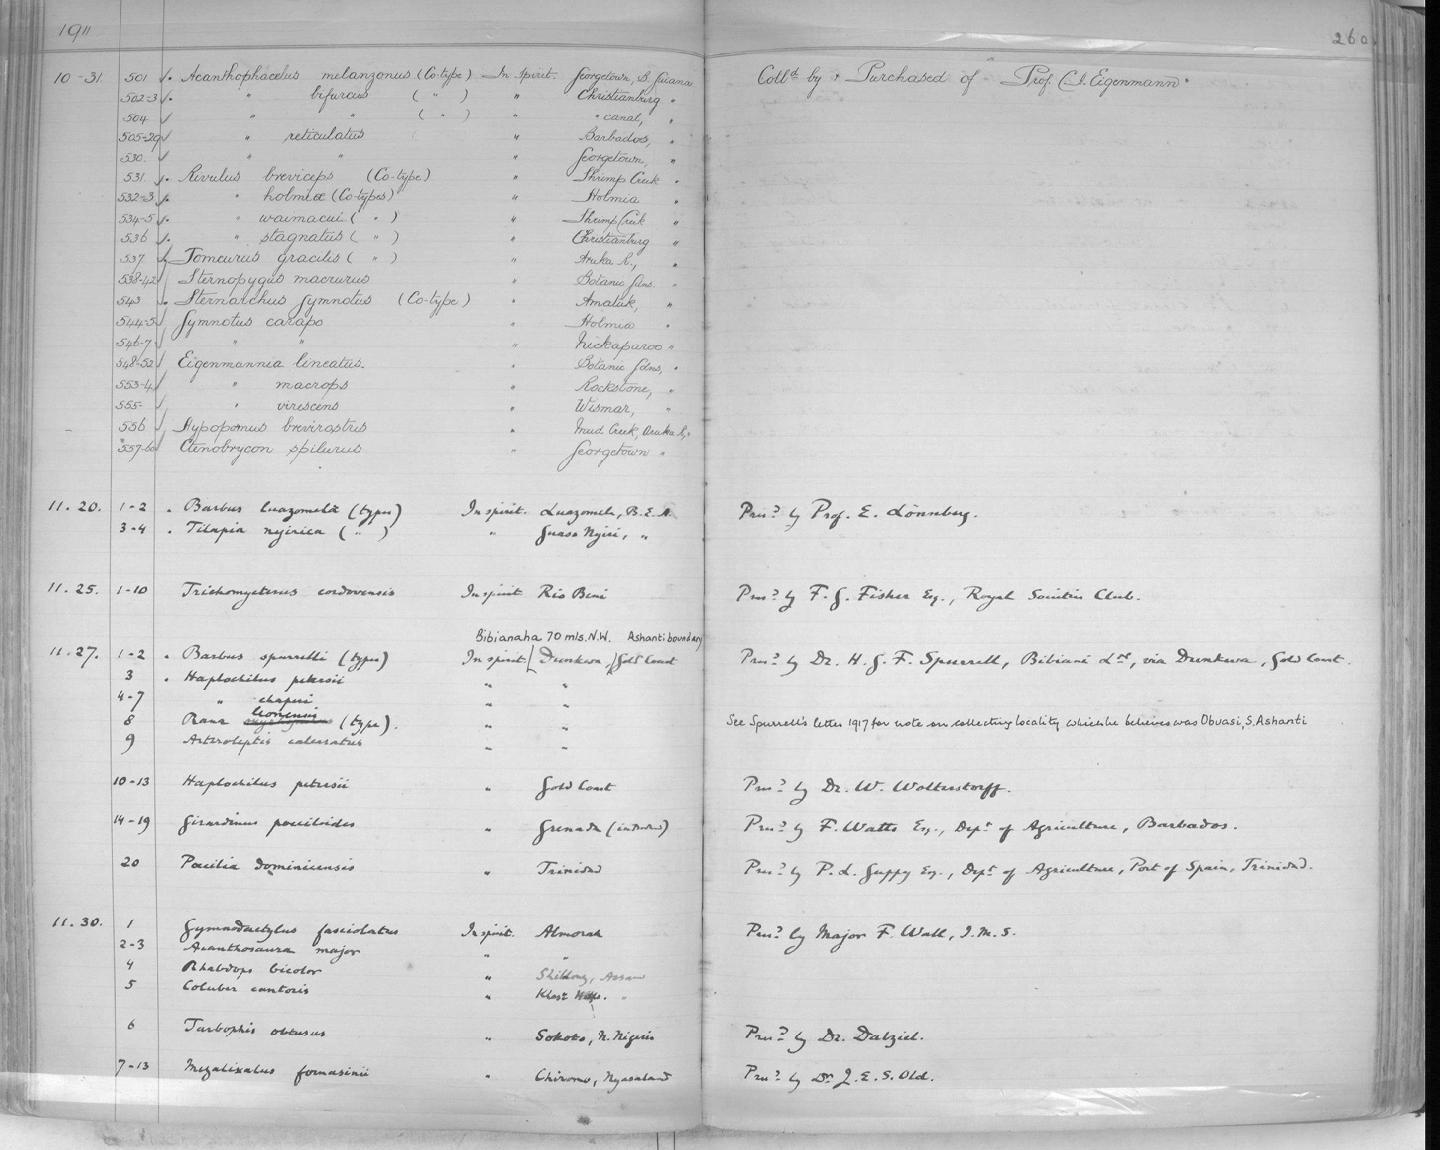 1911
260.
10-31. 501 Acanthophacelus melanzonus (Co-type) In spirit. Georgetown, B. Guiana Colld by & Purchased of Prof. C. J. Eigenmann.
502-3 " bifurcus ( " ) " Christianburg "
504 " " ( " ) " " canal, "
505-29 " reticulatus " Barbados, "
530. " " " Georgetown, "
531 Rivulus breviceps (Co-type) " Shrimp Creek "
532-3 " holmiæ (Co-types) " Holmia "
534-5 " waimacui ( " ) " Shrimp Creek "
536 " stagnatus ( " ) " Christianburg "
537 Tomeurus gracilis ( " ) " Aruka R., "
538-42 Sternopygus macrurus " Botanic Gdns. "
543 Sternarchus Gymnotus (Co-type) " Amatuk, "
544-5 Gymnotus carapo " Holmia "
546-7 " " " Nickaparoo "
548-52 Eigenmannia lineatus. " Botanic Gdns, "
553-4 " macrops " Rockstone, "
555- " virescens " Wismar, "
556 Hypopomus brevirostris " Mud Creek, Aruka R, "
557-60 Ctenobrycon spilurus " Georgetown "
11.20. 1-2 Barbus luazomelæ (types) In spirit. Luazomela, B.E.A. Presd by Prof. E. Lönnberg.
3-4 Tilapia nyirica ( " ) " Guaso Nyiri, "
11.25. 1-10 Trichomycterus cordovensis In spirit Rio Beni Presd by F. G. Fisher Esq., Royal Societies Club.
Bibianaha 70 mls. N.W. Ashanti boundary
11.27. 1-2 Barbus spurrelli (types) In spirit [Dunkwa,] Gold Coast Presd by Dr. H. G. F. Spurrell, Bibiani Ld, via Dunkwa, Gold Coast.
3 Haplochilus petersii " "
4-7 " chaperi " "
leonensis
8 Rana (type). " " See Spurrell's letter 1917 for note on collecting locality which he believes was Obuasi, S. Ashanti
9 Arthroleptis calcaratus " "
10-13 Haplochilus petersii " Gold Coast Presd by Dr. W. Wolterstorff.
14-19 Girardinus pœciloides " Grenada (introduced) Presd by F. Watts Esq., Dept of Agriculture, Barbados.
20 Pœcilia dominicensis " Trinidad Presd by P. L. Guppy Esq., Dept of Agriculture, Port of Spain, Trinidad.
11.30. 1 Gymnodactylus fasciolatus In spirit. Almorah Presd by Major F. Wall, I.M.S.
2-3 Acanthosaura major " "
4 Rhabdops bicolor " Shillong, Assam
5 Coluber cantoris " Khasi Hills. "
6 Tarbophis obtusus " Sokoto, N. Nigeria Presd by Dr. Dalziel.
7-13 Megalixalus fornasinii " Chiromo, Nyasaland Presd by Dr J. E. S. Old.